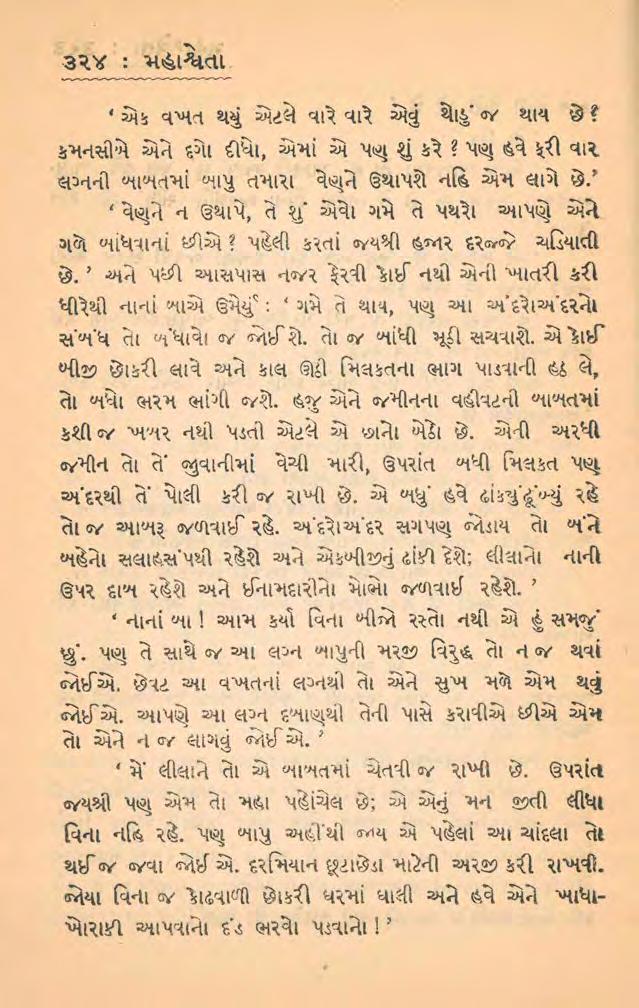 ૩૨૪ : મહાશ્વેતા
‘ એક વખત થયું એટલે વારે વારે એવું થોડું જ થાય છે ?
કમનસીબે એને દગો દીધો, એમાં એ પણ શું કરે ? પણ હવે ફરી વાર
લગ્નની બાબતમાં બાપુ તમારા વેણને ઉથાપશે નહિ એમ લાગે છે.’
‘ વેણને ન ઉથાપે, તે શું એવો ગમે તે પથરો આપણે એને
ગળે બાંધવાનાં છીએ ? પહેલી કરતાં જયશ્રી હજાર દરજ્જે ચડિયાતી
છે. ’ અને પછી આસપાસ નજર ફેરવી કોઈ નથી એની ખાતરી કરી
ધીરેથી નાનાં બાએ ઉમેર્યું : ‘ ગમે તે થાય, પણ આ અંદરોઅંદરનો
સંબંધ તો બંધાવો જ જોઈશે. તો જ બાંધી મૂડી સચવાશે. એ કોઈ
બીજી છોકરી લાવે અને કાલ ઊઠી મિલકતના ભાગ પાડવાની હઠ લે,
તો બધો ભરમ ભાંગી જશે. હજુ એને જમીનના વહીવટની બાબતમાં
કશી જ ખબર નથી પડતી એટલે એ છાનો બેઠો છે. એની અરધી
જમીન તો તેં જુવાનીમાં વેચી મારી, ઉપરાંત બધી મિલકત પણ
અંદરથી તેં પોલી કરી જ રાખી છે. એ બધું હવે ઢાંક્યુંઢૂંબ્યું રહે
તો જ આબરૂ જળવાઈ રહે. અંદરોઅંદર સગપણ જોડાય તો બંને
બહેનો સલાહસંપથી રહેશે અને એકબીજીનું ઢાંકી દેશે; લીલાનો નાની
ઉપર દાબ રહેશે અને ઈનામદારીનો મોભો જળવાઈ રહેશે. ’
‘ નાનાં બા ! આમ કર્યા વિના બીજો રસ્તો નથી એ હું સમજું
છું. પણ તે સાથે જ આ લગ્ન બાપુની મરજી વિરુદ્ધ તો ન જ થવાં
જોઈએ. છેવટ આ વખતનાં લગ્નથી તો એને સુખ મળે એમ થવું
જોઈએ. આપણે આ લગ્ન દબાણથી તેની પાસે કરાવીએ છીએ એમ
તો એને ન જ લાગવું જોઈએ. ’
‘ મેં લીલાને તો એ બાબતમાં ચેતવી જ રાખી છે. ઉપરાંત
જયશ્રી પણ એમ તો મહા પહોંચેલ છે; એ એનું મન જીતી લીધા
વિના નહિ રહે. પણ બાપુ અહીંથી જાય એ પહેલાં આ ચાંદલા તો
થઈ જ જવા જોઈએ. દરમિયાન છૂટાછેડા માટેની અરજી કરી રાખવી.
જોયા વિના જ કોઢવાળી છોકરી ઘરમાં ઘાલી અને હવે એને ખાધા-
ખોરાકી આપવાનો દંડ ભરવો પડવાનો ! ’